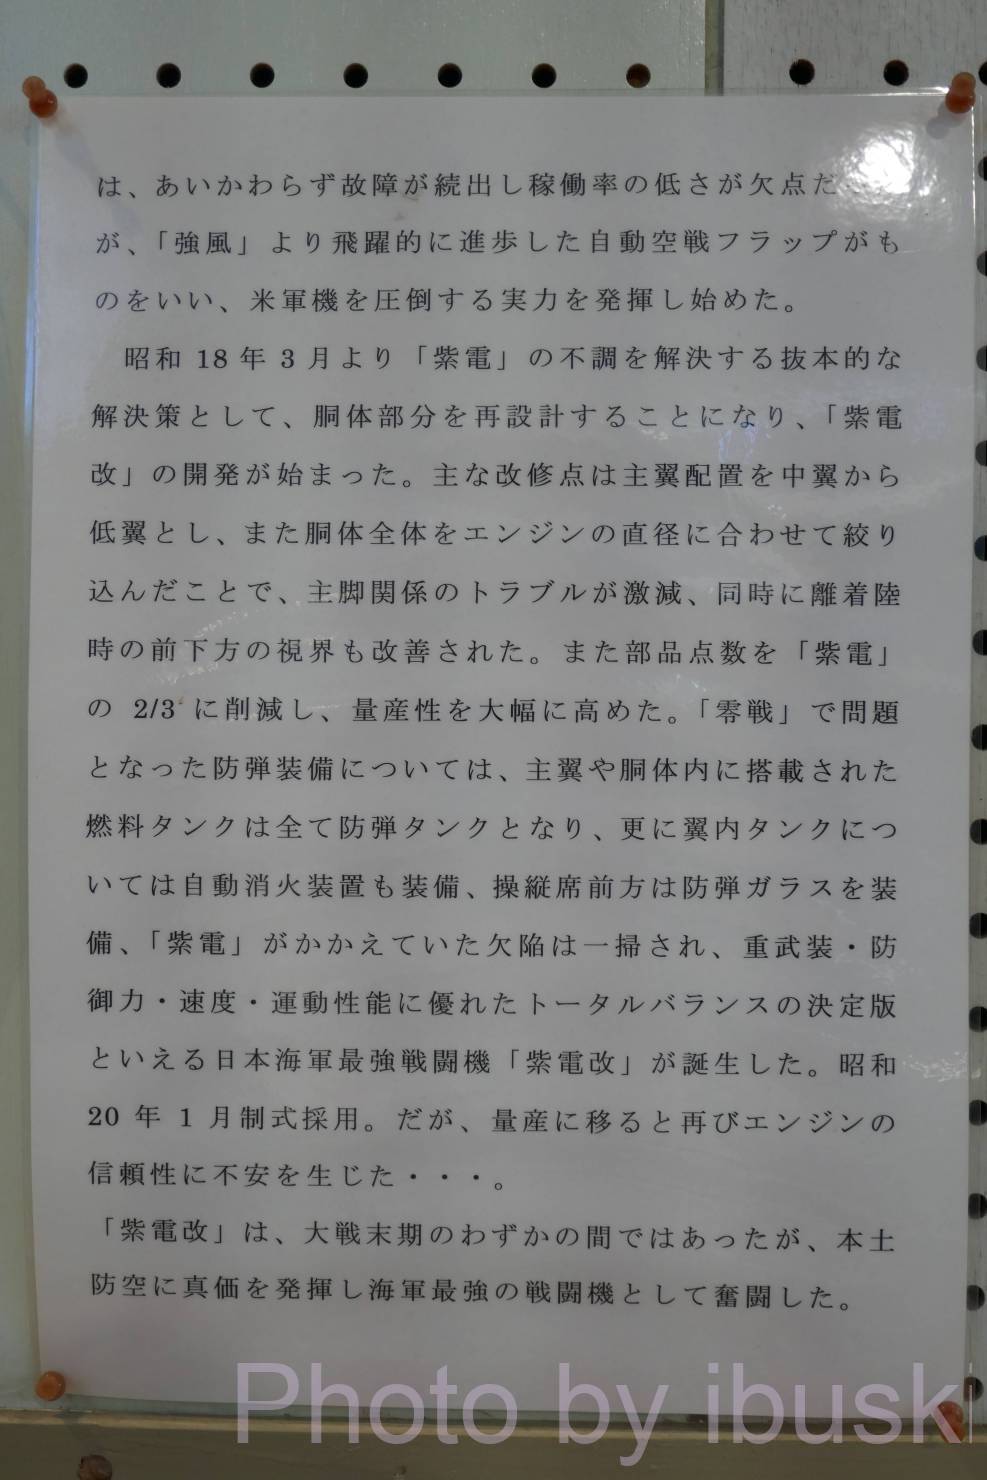 は、あいかわらず故障が続出し稼働率の低さが欠点だ
が、「強風」より飛躍的に進歩した自動空戦フラップがも
のをいい、米軍機を圧倒する実力を発揮し始めた。
昭和 18 年 3 月より「紫電」の不調を解決する抜本的な
解決策として、胴体部分を再設計することになり、「紫電
改」の開発が始まった。主な改修点は主翼配置を中翼から
低翼とし、また胴体全体をエンジンの直径に合わせて絞り
込んだことで、主脚関係のトラブルが激減、同時に離着陸
時の前下方の視界も改善された。また部品点数を「紫電」
の 2/3 に削減し、量産性を大幅に高めた。「零戦」で問題
となった防弾装備については、主翼や胴体内に搭載された
燃料タンクは全て防弾タンクとなり、更に翼内タンクにつ
いては自動消火装置も装備、操縦席前方は防弾ガラスを装
備、「紫電」がかかえていた欠陥は一掃され、重武装・防
御力・速度・運動性能に優れたトータルバランスの決定版
といえる日本海軍最強戦闘機「紫電改」が誕生した。昭和
20 年 1 月制式採用。だが、量産に移ると再びエンジンの
信頼性に不安を生じた・・・。
「紫電改」は、大戦末期のわずかの間ではあったが、本土
防空に真価を発揮し海軍最強の戦闘機として奮闘した。
Photo by ibuski